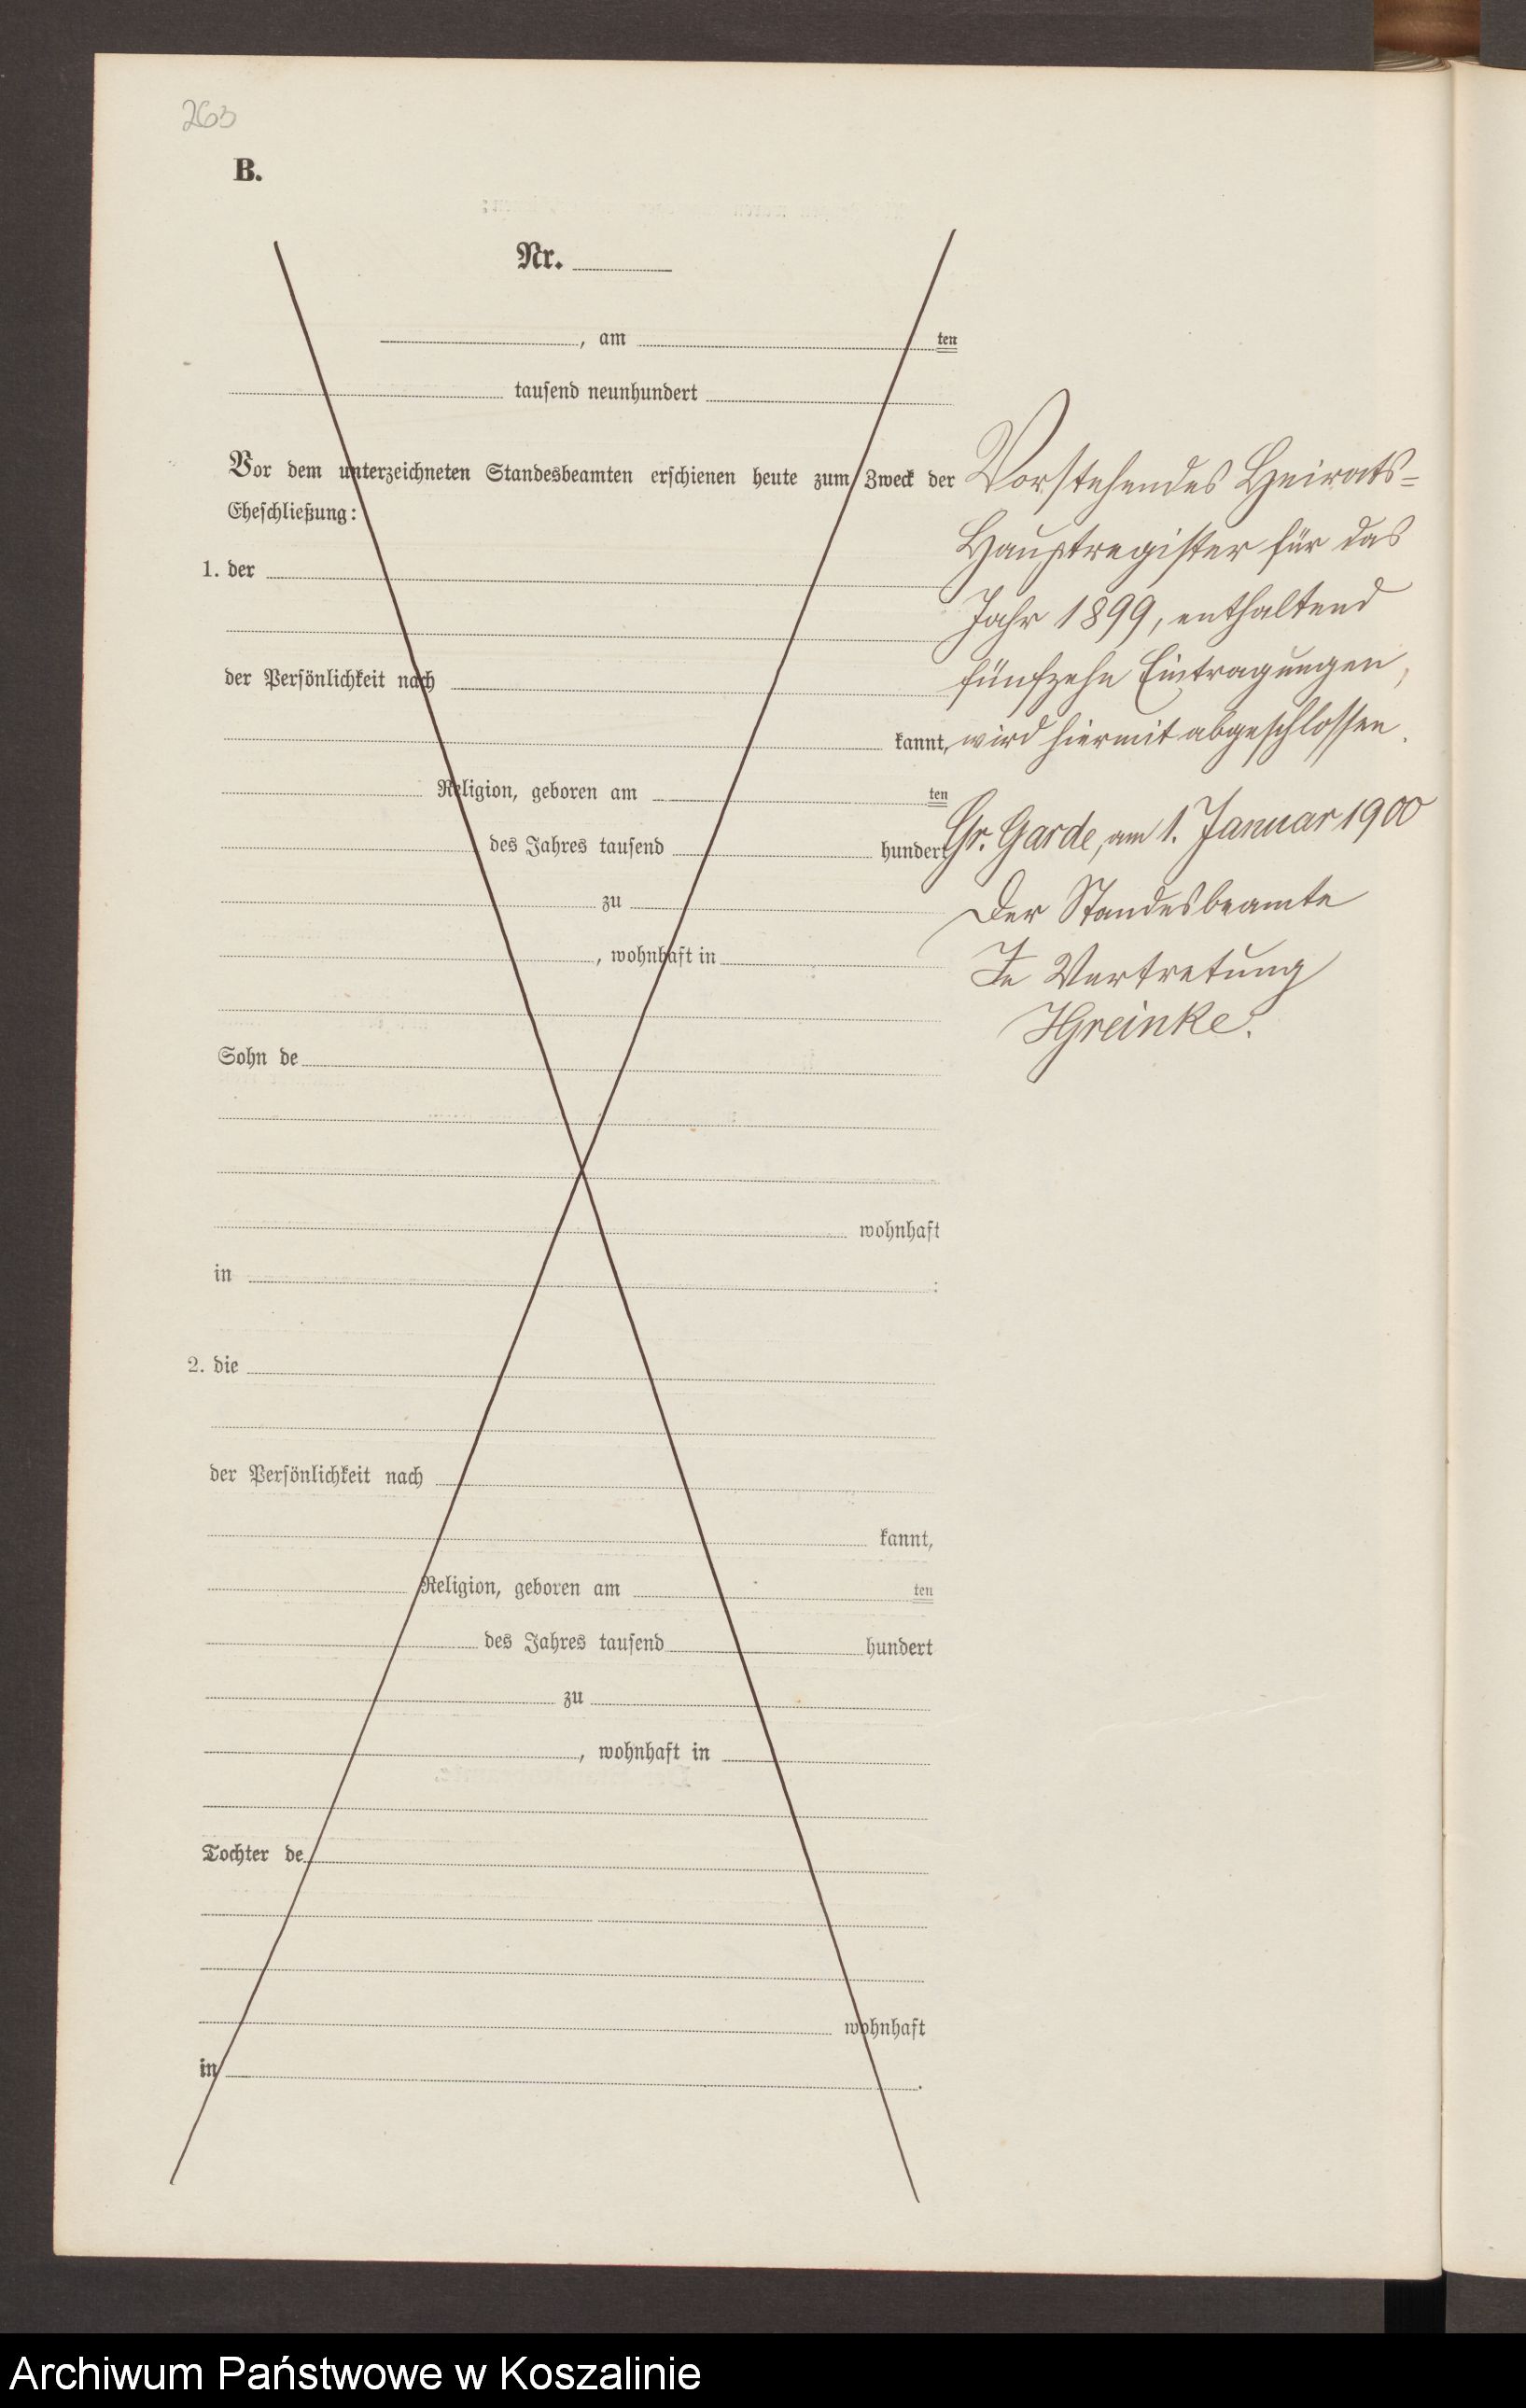 263
B.
Nr.
, am ten
tausend neunhundert
Vor dem unterzeichneten Standesbeamten erschienen heute zum Zweck der
Eheschließung:
1. der
der Persönlichkeit nach
kannt,
Religion, geboren am ten
des Jahres tausend hundert
zu
, wohnhaft in
Sohn de
wohnhaft
in :
2. die
der Persönlichkeit nach
kannt,
Religion, geboren am ten
des Jahres tausend hundert
zu
, wohnhaft in
Tochter de
wohnhaft
in .
Vorstehendes Heirats-
Hauptregister für das
Jahr 1899, enthaltend
fünfzehn Eintragungen,
wird hiermit abgeschlossen.
Gr. Garde, am 1. Januar 1900
Der Standesbeamte
In Vertretung
HGreinke.
Archiwum Państwowe w Koszalinie